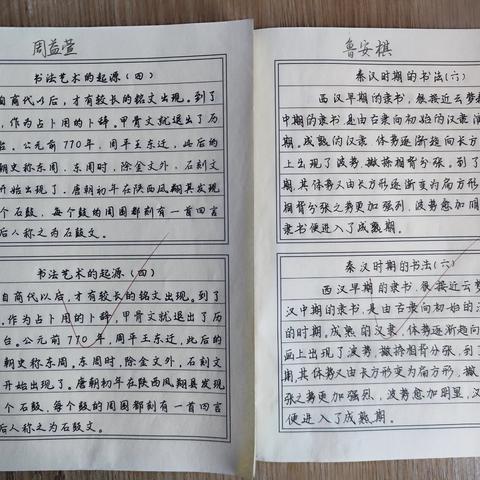 周益萱
书法艺术的起源(四)
自商代以后,才有较长的铭文出现。到了
,作为占卜用的卜辞,甲骨文就退出了历
台。公元前770年,周平王东迁,此后的
朝史称东周。东周时,除金文外,石刻文
开始出现了。唐朝初年在陕西凤翔县发现
个石鼓,每个鼓的周围都刻有一首四言
后人称之为石鼓文。
书法艺术的起源(四)
自商代以后,才有较长的铭文出现。到了
,作为占卜用的卜辞,甲骨文就退出了历
台。公元前770年,周平王东迁,此后的
朝史称东周。东周时,除金文外,石刻文
开始出现了。唐朝初年在陕西凤翔县发现
个石鼓,每个鼓的周围都刻有一首四言
后人称之为石鼓文。
鲁安棋
秦汉时期的书法(六)
西汉早期的隶书,很接近云梦
中期的隶书,是由古隶向初始的汉隶演
期。成熟的汉隶,体势逐渐趋向长方
上出现了波势,撇捺相背分张。到了
期,其体势又由长方形逐渐变为扁方形,
相背分张之势更加强烈,波势愈加明
隶书便进入了成熟期。
秦汉时期的书法(六)
西汉早期的隶书,很接近云梦
汉中期的隶书,是由古隶向初始的汉
的时期。成熟的汉隶,体势逐渐趋向
画上出现了波势,撇捺相背分张,到了
期,其体势又由长方形变为扁方形,撇
张之势更加强烈,波势愈加明显,汉
便进入了成熟期。